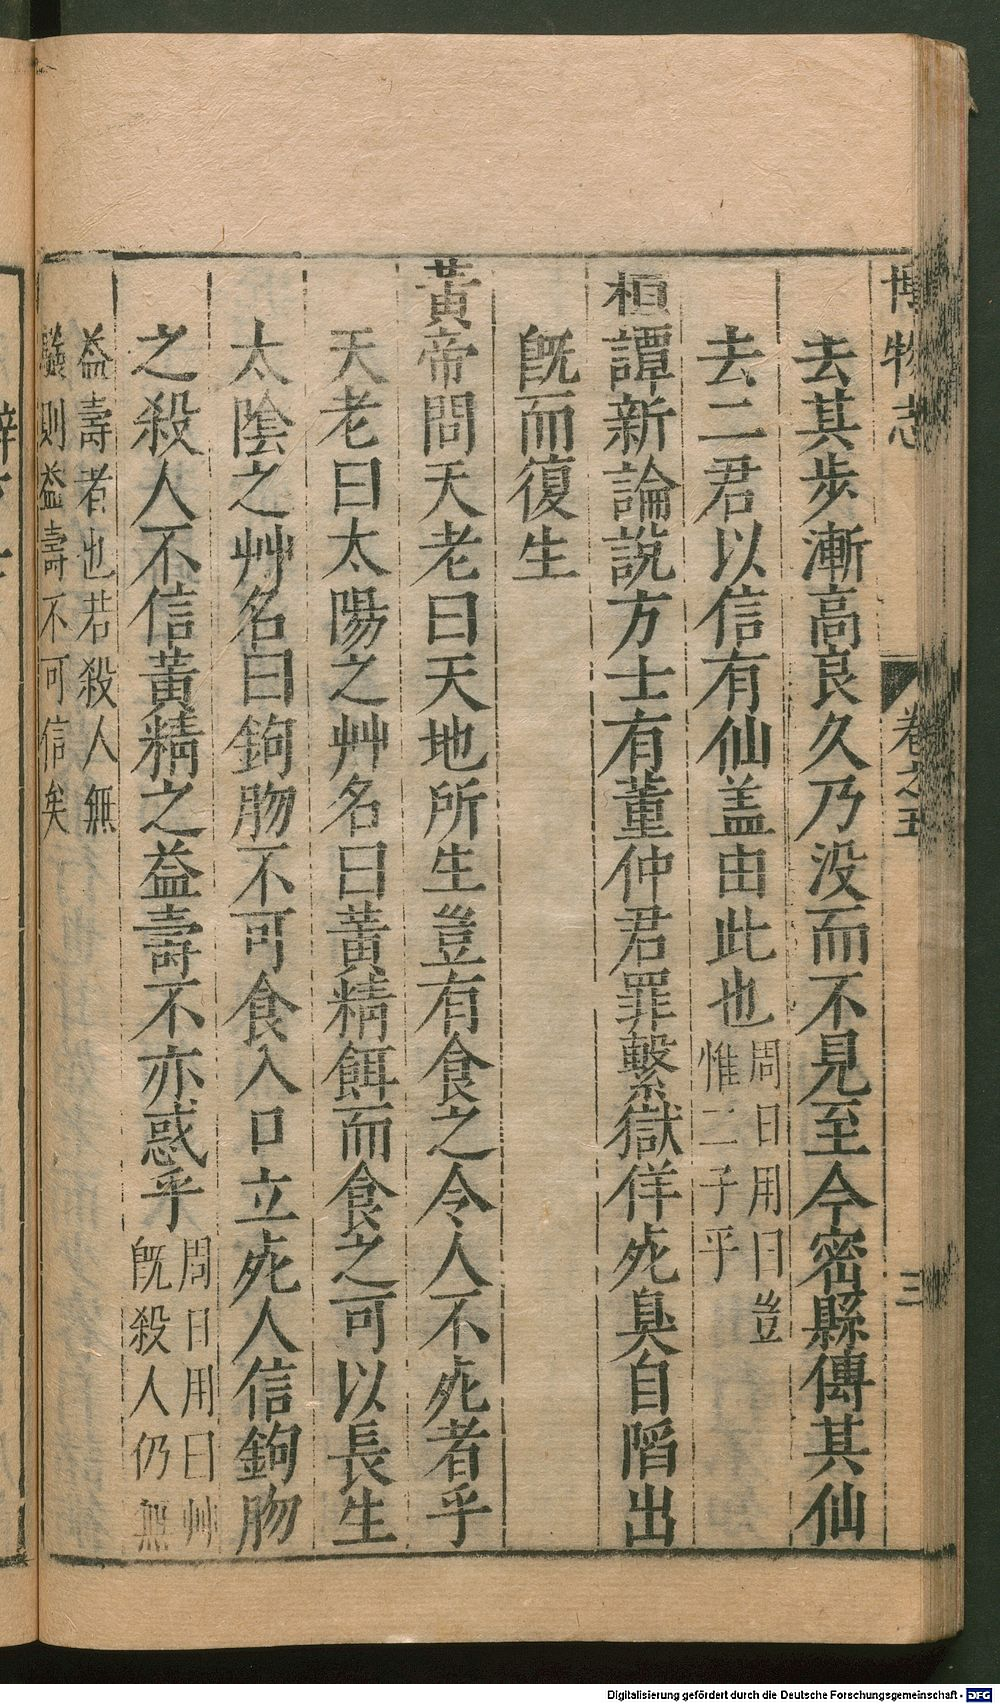 博物志 卷之五 三
去其步漸高良久乃没而不見至今密縣傳其仙
去二君以信有仙盖由此也周日用曰豈
惟二子乎
桓譚新論說方士有董仲君罪繫獄佯死臭自陷出
旣而復生
黃帝問天老曰天地所生豈有食之令人不死者乎
天老曰太陽之艸名曰黃精餌而食之可以長生
太陰之艸名曰鉤脗不可食入口立死人信鉤脗
之殺人不信黃精之益壽不亦惑乎周日用曰艸
旣殺人仍無
益壽者也若殺人無
驗則益壽不可信矣
Digitalisierung gefördert durch die Deutsche Forschungsgemeinschaft - DFG